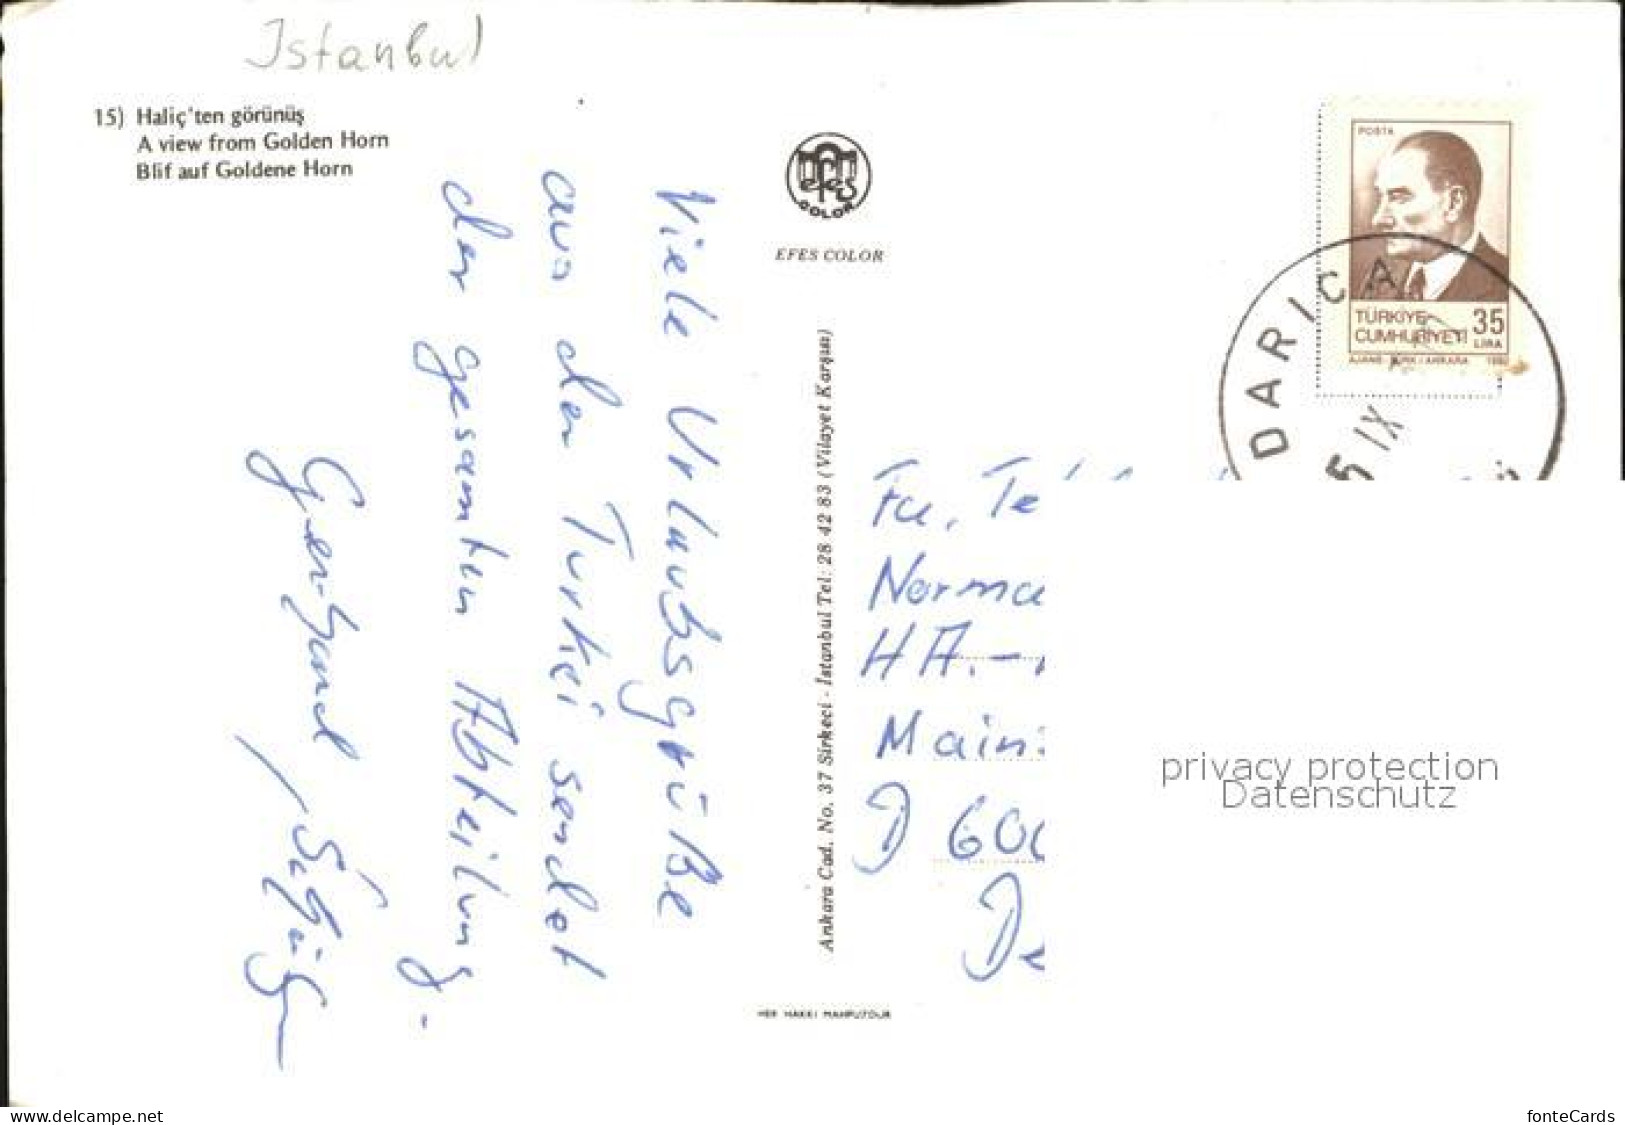 Istanbul
15) Haliç'ten görünüş
A view from Golden Horn
Blif auf Goldene Horn
efes
COLOR
EFES COLOR
Viele Urlaubsgrüße
aus der Türkei sendet
der gesamten Abteilung.
Ankara Cad. No. 37 Sirkeci - İstanbul Tel: 28 42 83 (Vilayet Karşısı)
HER HAKKI MAHFUZDUR
POSTA
TÜRKİYE
CUMHURİYETİ
35
LİRA
AJANS-TÜRK / ANKARA
DARICA
5 IX
Fa. Te
Norma
HA.-
Main
D 600
privacy protection
Datenschutz
www.delcampe.net
fonteCards